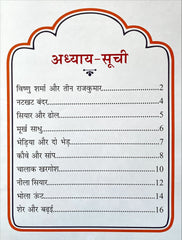 अध्याय-सूची
विष्णु शर्मा और तीन राजकुमार.....................2
नटखट बंदर.....................4
सियार और ढोल.....................5
मूर्ख साधु.....................6
भेड़िया और दो भेड़.....................7
कौवे और सांप.....................8
चालाक खरगोश.....................10
नीला सियार.....................12
भोला ऊंट.....................14
शेर और बढ़ई.....................16